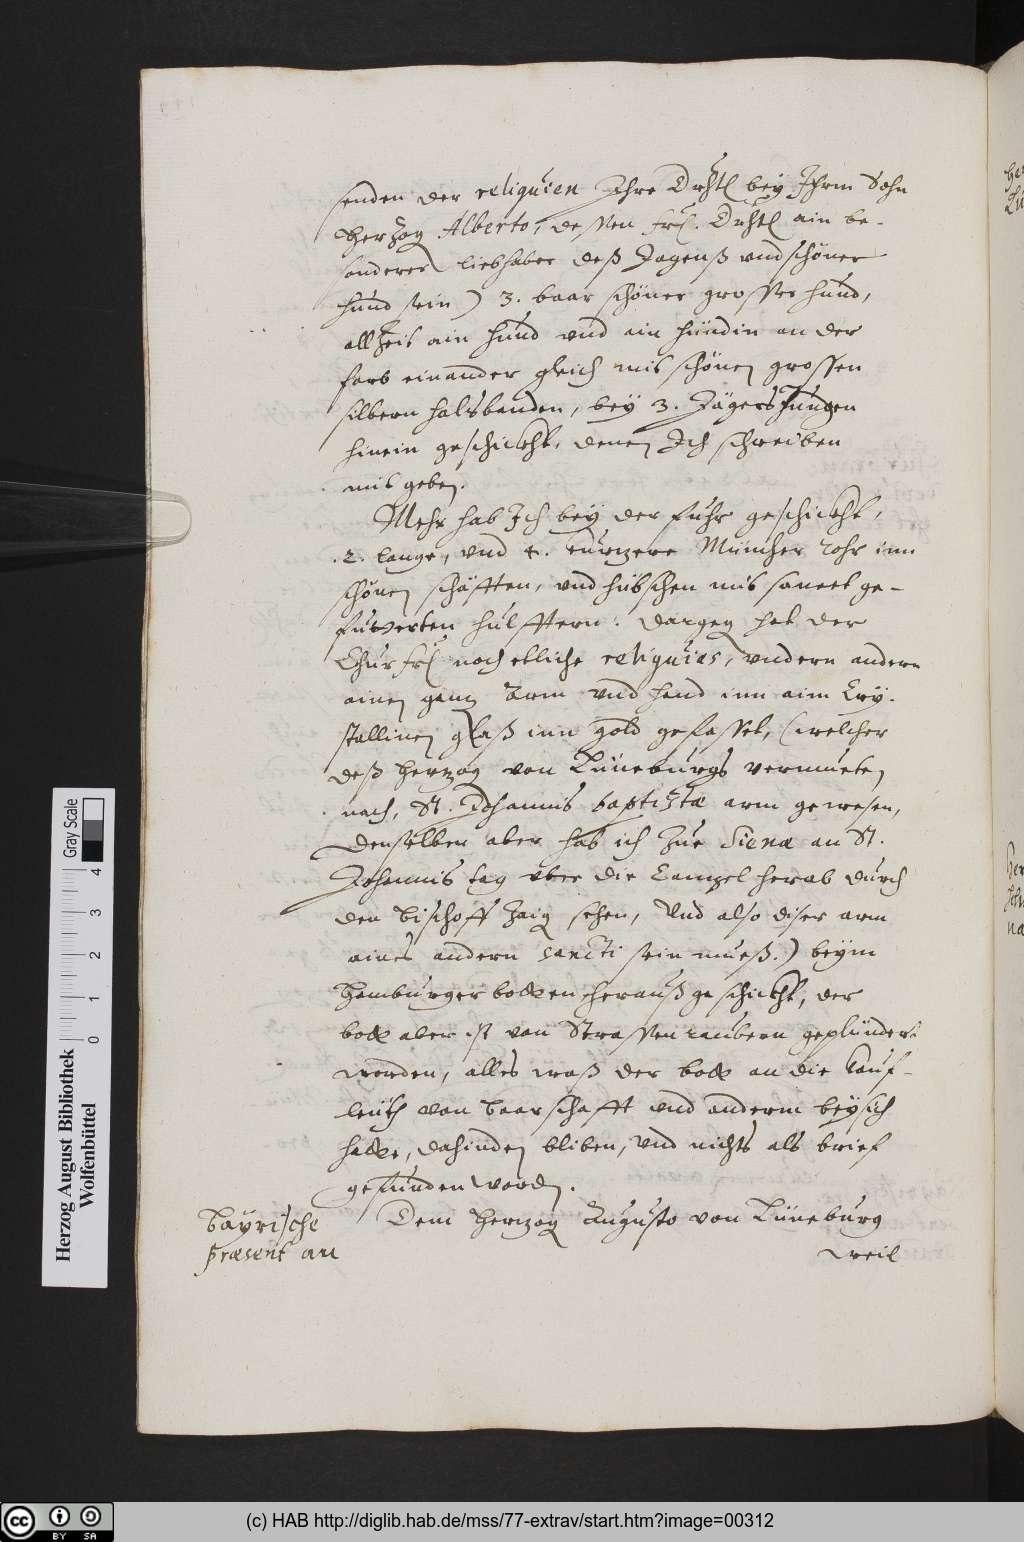 senden der reliquien Ihre Drhtl bey Ihrm Sohn
Herzog Alberto, dessen frl. Drhtl ain be-
sonderer liebhaber deß Jagenß vnd schöner
hund sein) 3. baar schöner grosser hund,
allzeit ain hund vnd ain hündin an der
farb einander gleich mit schönen grossen
silbern halsbanden, bey 3. Jägers Jungen
hinein geschickht, denen Ich schreiben
mit geben.
Mehr hab Ich bey der fuhr geschickht,
2. lange, vnd 4. kurzere Müncher rohr inn
schönen schäfften, vnd hübschen mit samet ge-
fuetterten hulfftern: dargegen hat der
Churfrl noch etliche reliquias, vndern andern
ainen ganz Arm vnd hand inn aim Cry-
stallinen glaß inn gold gefasset, (welcher
deß Herzog von Lüneburgs vermueten
nach, St. Johannis baptistæ arm gewesen,
denselben aber hab ich zue Siena an St.
Johannis tag vber die Canzel herab durch
den Bischoff zaigen sehen, Vnd also diser arm
aines andern sancti sein mueß.) beym
Hamburger botten herauß geschickht, der
bott aber ist von Strassenraubern geplündert
worden, alles waß der bott an die kauf-
leüth von baarschafft vnd anderm bey sich
hatte, dahinden bliben, vnd nichts als brief
gefunden worden.
Bayrische
præsent an
Dem Herzog Augusto von Lüneburg
weil
Herzog August Bibliothek
Wolfenbüttel
Gray Scale
0 1 2 3 4
(c) HAB http://diglib.hab.de/mss/77-extrav/start.htm?image=00312
cc BY SA